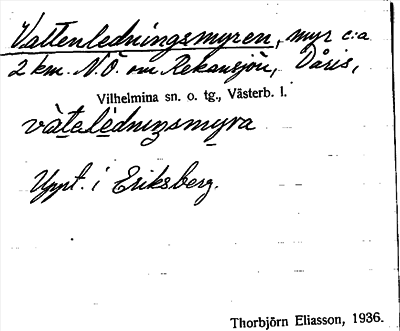 Vattenledningsmyren, myr c:a
2 km. N.Ö. om Rekansjön, Dåris,
Vilhelmina sn. o. tg., Västerb. l.
Uppt. i Eriksberg.
Thorbjörn Eliasson, 1936.